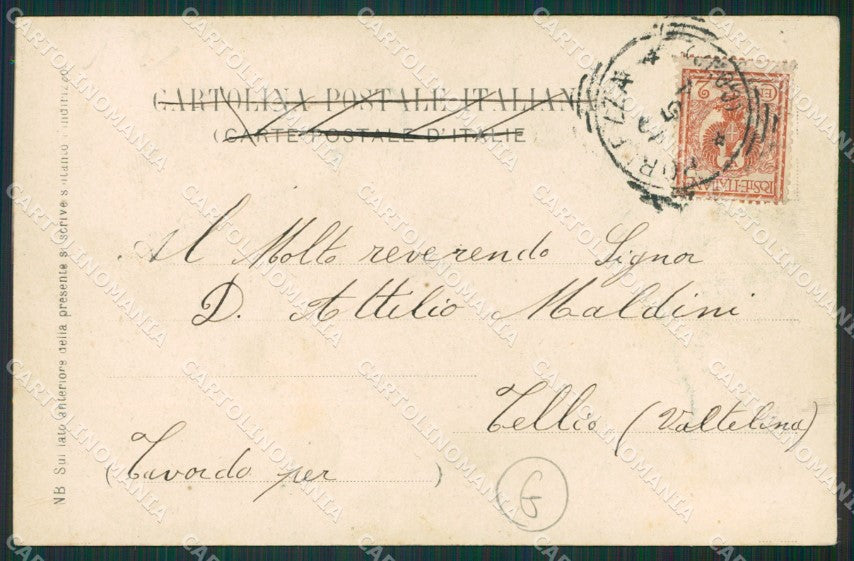 CARTOLINA POSTALE ITALIANA
(CARTE POSTALE D'ITALIE
Al Molto reverendo Signor
D. Attilio Maldini
Tellio (Valtelina)
(Tavordo per )
G
NB Sul lato anteriore della presente si scrive soltanto l'indirizzo
POSTE ITALIANE
CARTOLINOMANIA